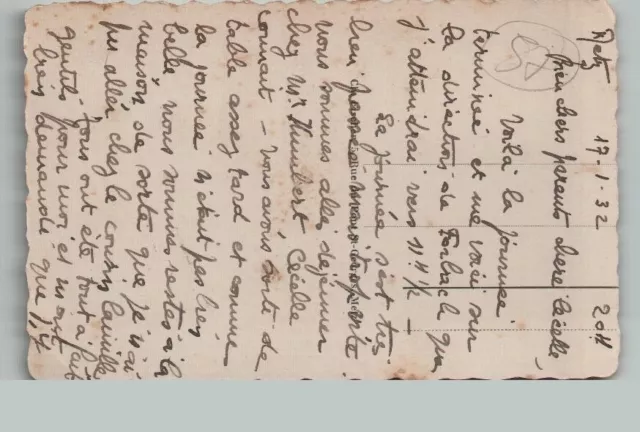 Metz 17-1-32 20H
Bien chers parents chère Cécelle,
Voilà la journée
terminée et me voici sur
la direction de Forbach que
j'attendrai vers 11H ½ —
La journée s'est très
bien passée mais
nous sommes allés déjeuner
chez Mr Humbert Cécelle
connait — nous avons sorti de
table assez tard et comme
la journée n'était pas très
belle nous sommes restés à la
maison de sorte que je n'ai
pu aller chez le cousin Camille
Tous ont été tout à fait
gentils pour moi et m'ont
bien demandé que j'y
58